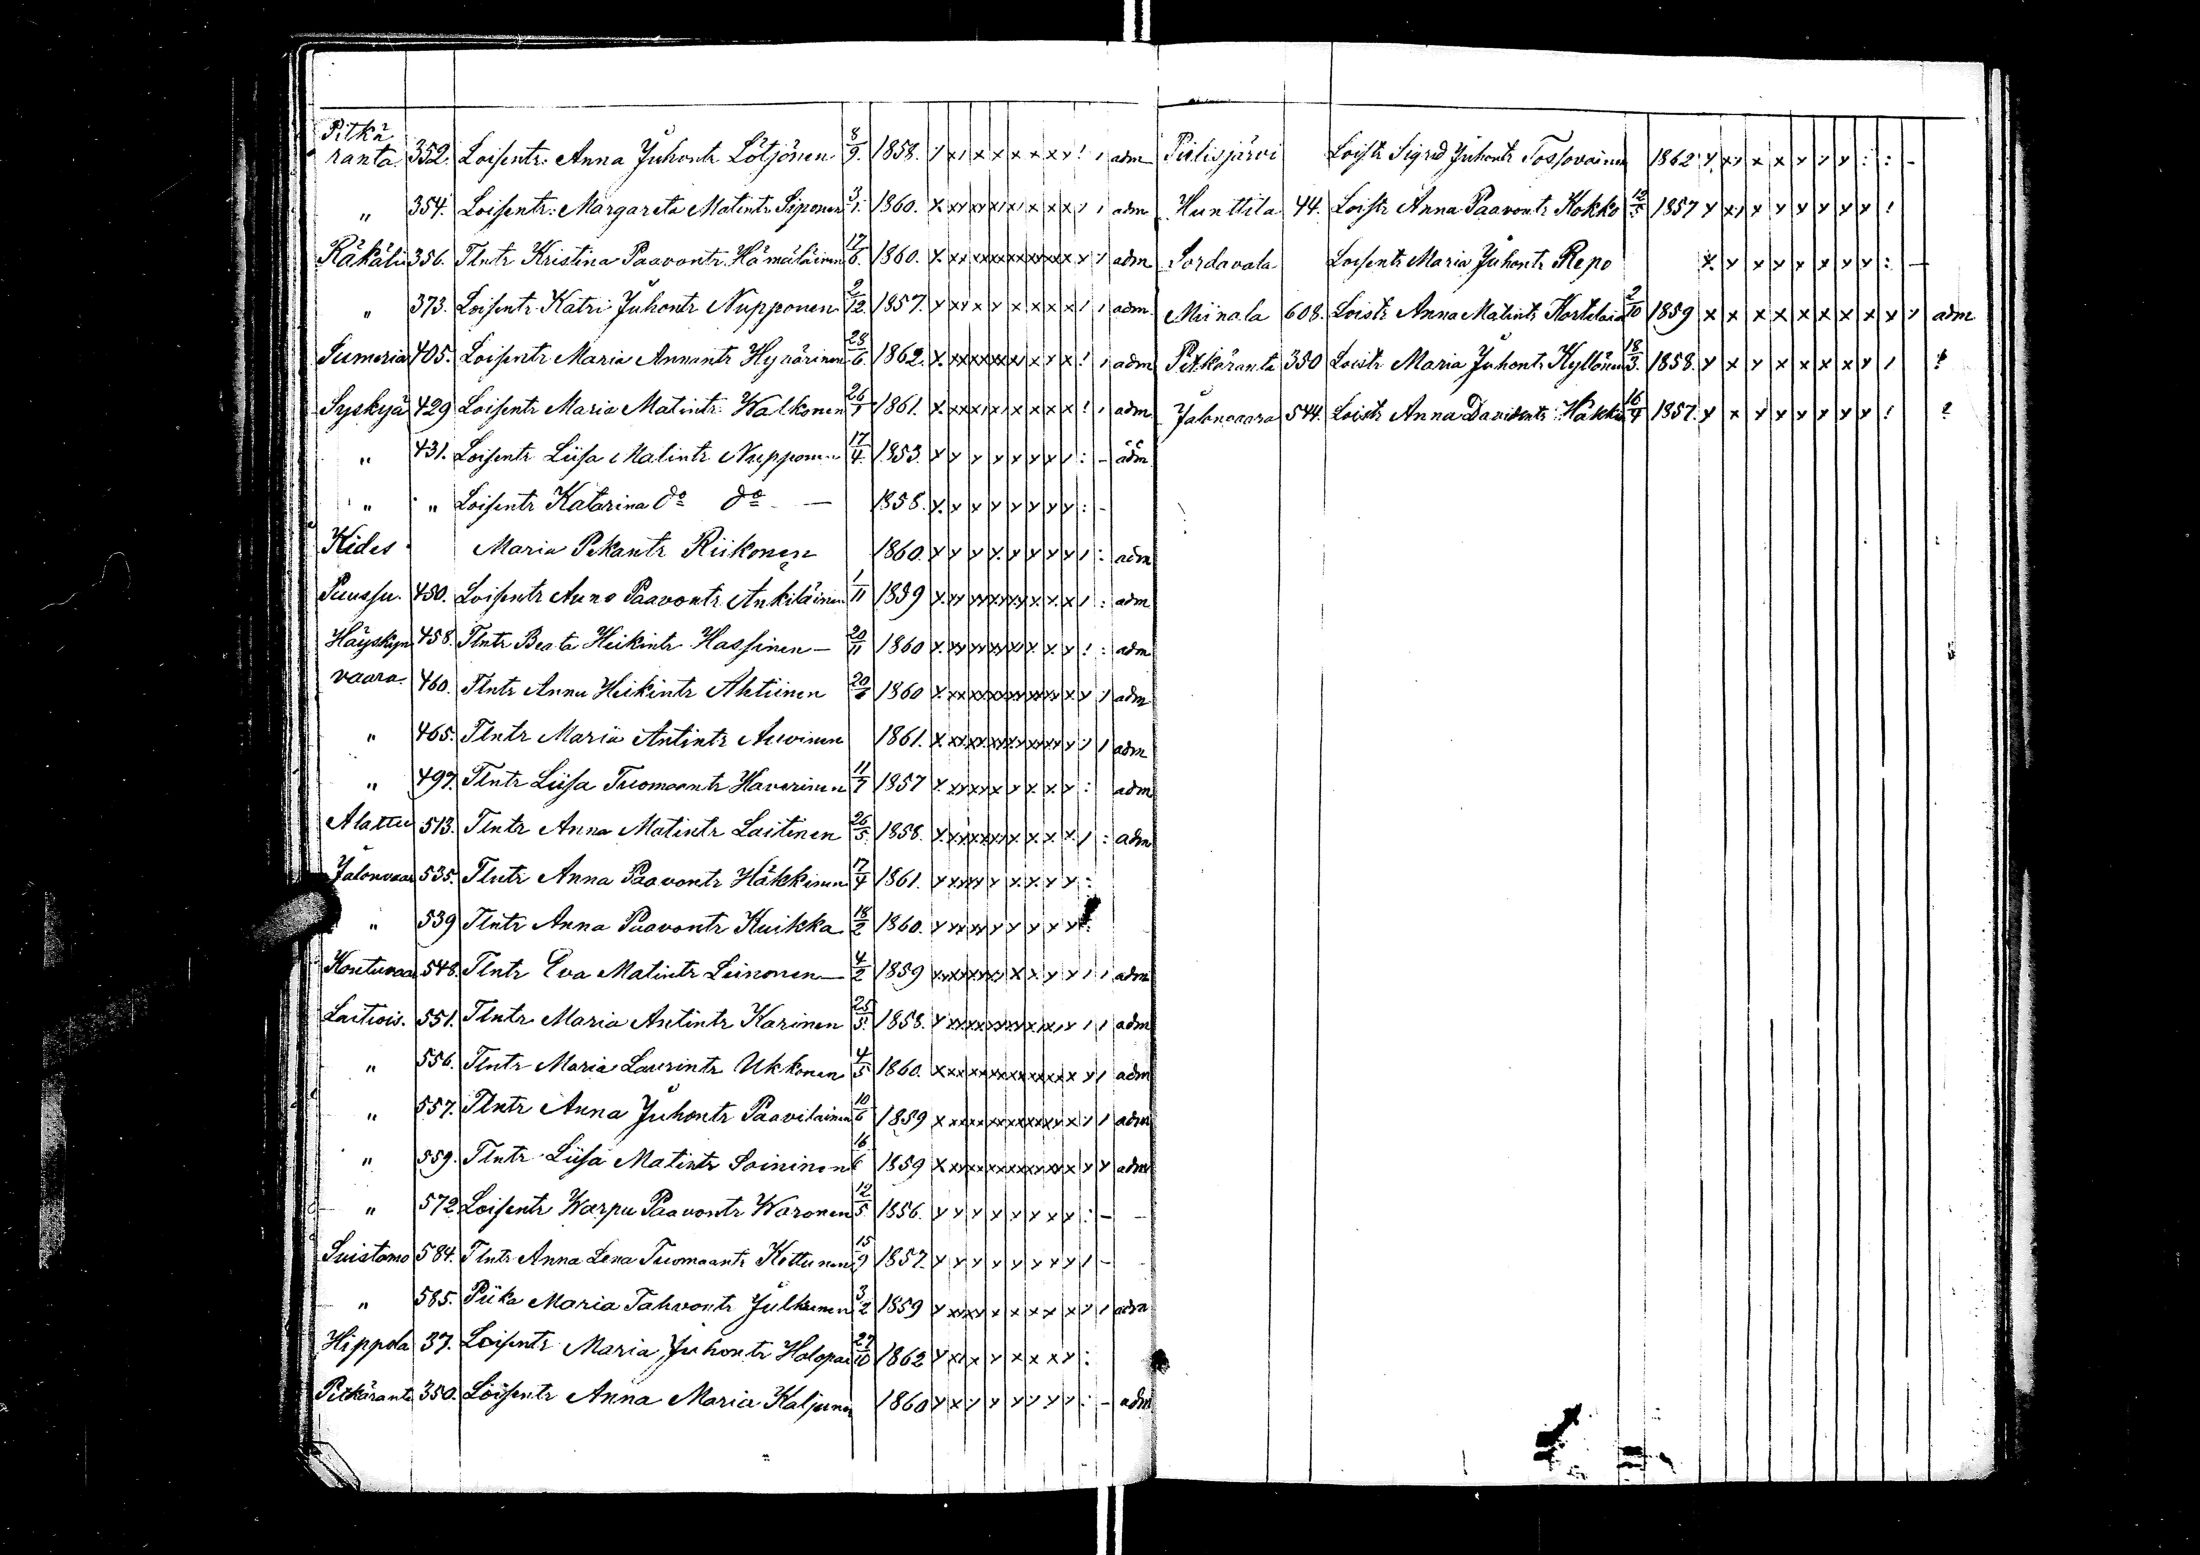 Pitkä
ranta 352. Loisentr. Anna Juhontr Lötjönen 8/9. 1858. adm
" 354. Loisentr. Margareta Matintr Siponen 3/1. 1860. adm
Räkäli 356. Tlntr Kristina Paavontr Hämäläinen 17/6. 1860. adm
" 373. Loisentr Katri Juhontr Nupponen 2/12. 1857. adm
405. Loisentr Maria Annantr 28/6. 1862. adm
Syskyä 429 Loisentr Maria Matintr Walkonen 1861. adm
" 431. Loisentr Liisa Matintr Nupponen 17/4. 1853. adm
" " Loisentr Katarina do do — 1858.
Kides Maria Pekantr Riikonen 1860. adm
450. Loisentr Paavontr Ankiläinen 1/11 1859 adm
Häyskyn 458. Tlntr Beata Heikintr Hassinen — 20/11 1860 adm
vaara 460. Tlntr Anna Heikintr Ahtiinen 1860 adm
" 465. Tlntr Maria Antintr Auvinen 1861. adm
" 497. Tlntr Liisa Tuomaantr Haverinen 11/7 1857 adm
Alattu 513. Tlntr Anna Matintr Laitinen 26/5. 1858. adm
Jalonvaar 535. Tlntr Anna Paavontr Häkkinen 17/4 1861.
" 539 Tlntr Anna Paavontr Kuikka 18/2 1860.
Kontuvaa 548. Tlntr Eva Matintr Leinonen — 4/2 1859 adm
Laitiois. 551. Tlntr Maria Antintr Karinen 25/5. 1858. adm
" 556. Tlntr Maria Laurintr Ukkonen 4/5 1860. adm
" 557. Tlntr Anna Juhontr Paavilainen 10/6 1859 adm
" 559. Tlntr Liisa Matintr Soininen 16/6 1859 adm
" 572 Loisentr Warpu Paavontr Waronen 12/5 1856.
Suistamo 584. Tlntr Anna Lena Tuomaantr Kettunen 15/9 1857.
" 585. Piika Maria Tahvontr Julkunen 3/2 1859 adm
Hippola 37. Loisentr Maria Juhontr Holopai 27/10 1862
Pitkäranta 350. Loisentr Anna Maria Kaljunen 1860 adm
Pielisjärvi Loistr Sigrid Juhontr Tossavainen 1862
Hunttila 44. Loistr Anna Paavontr Kokko 12/5 1857
Sordavala Loisentr Maria Juhontr Repo
Miinala 608. Loistr Anna Matintr 2/10 1859 adm
Pitkäranta 350 Loistr Maria Juhontr Kyllönen 18/3. 1858. ?
Jalonvaara 544. Loistr Anna Davidintr Häkki 16/4 1857. ?